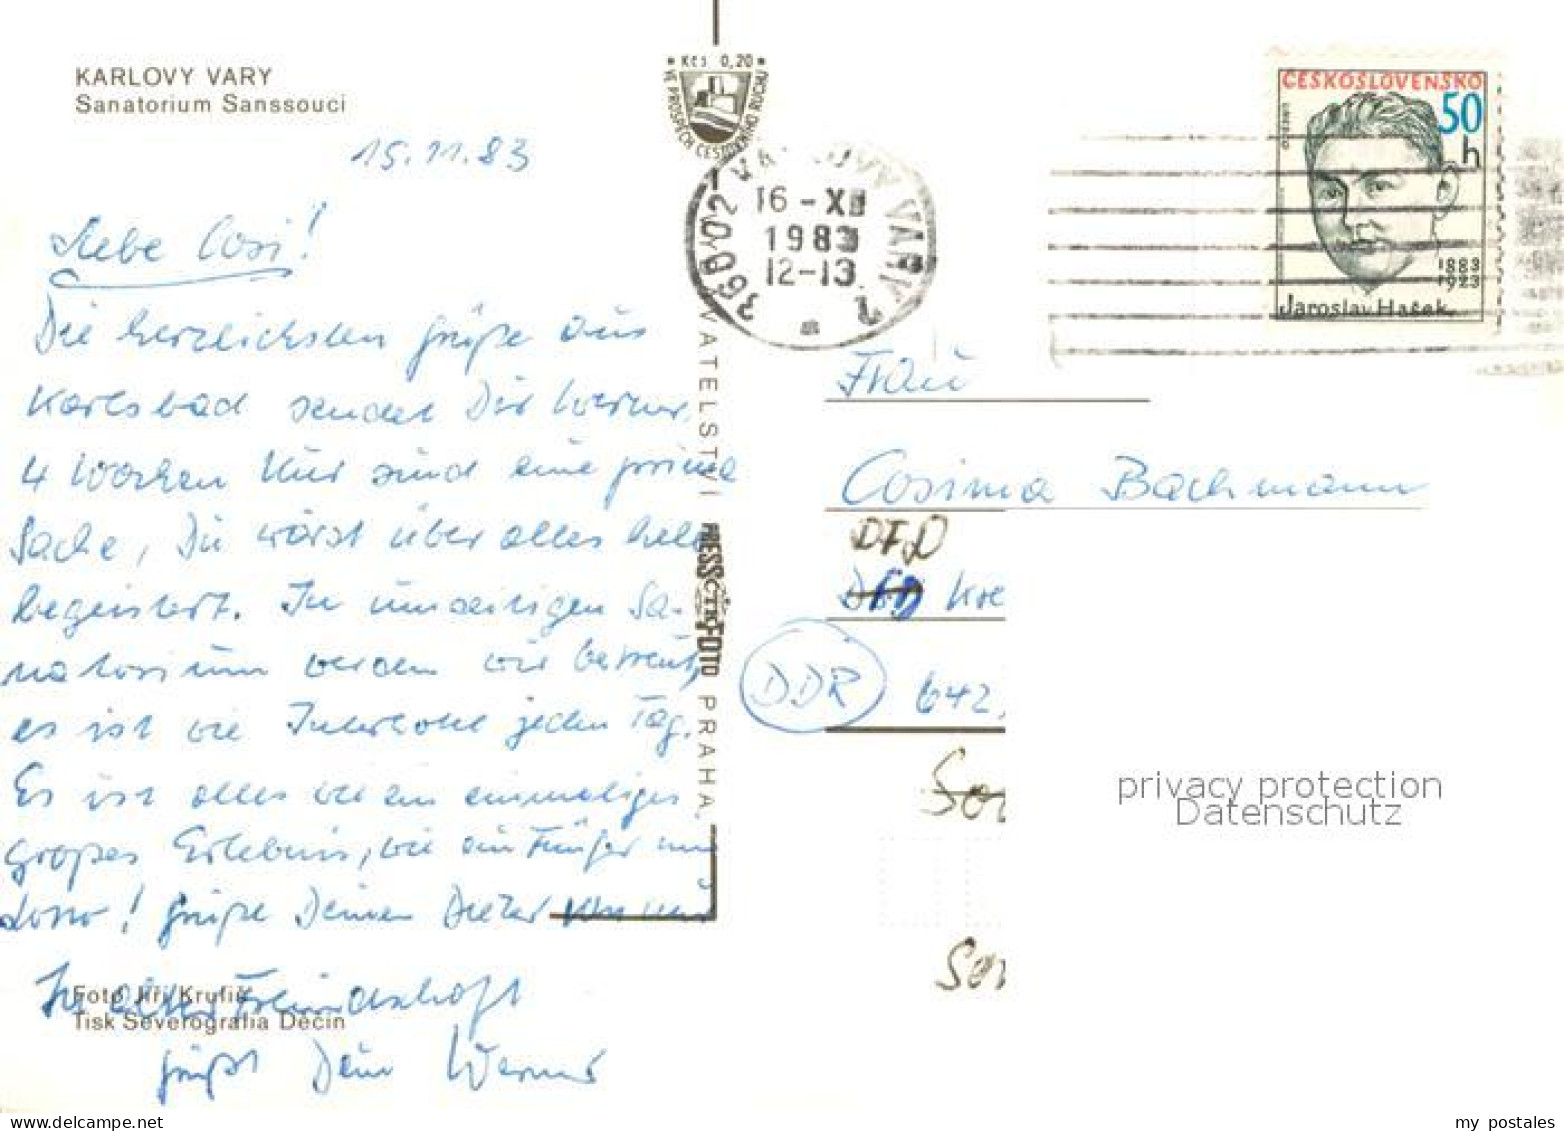 KARLOVY VARY
Sanatorium Sanssouci
15.11.83
Liebe Cosi!
Die herzlichsten Grüße aus
Karlsbad sendet Dir Werner.
4 Wochen Kur sind eine prima
Sache, Du wärst über alles hell
begeistert. Im umseitigen Sa-
natorium werden wir betreut,
es ist wie Interhotel jeden Tag.
Es ist alles wie ein einmaliges
großes Erlebnis, wie ein Fünfer im
Lotto! Grüße Deinen Dieter von mir
In alter Freundschaft
grüßt Dein Werner
Foto Jiří Kruliš
Tisk Severografia Děčín
* Kčs 0,20 *
VE PROSPĚCH CESTOVNÍHO RUCHU
360 02 KARLOVY VARY 2
16-XI
1983
12-13
VYDAVATELSTVÍ PRESSFOTO PRAHA
ČTK
ČESKOSLOVENSKO
50
h
1883
1923
Jaroslav Hašek
Frau
Cosima Bachmann
DFD
DFD Kre
DDR 642
Son
Son
privacy protection
Datenschutz
my postales